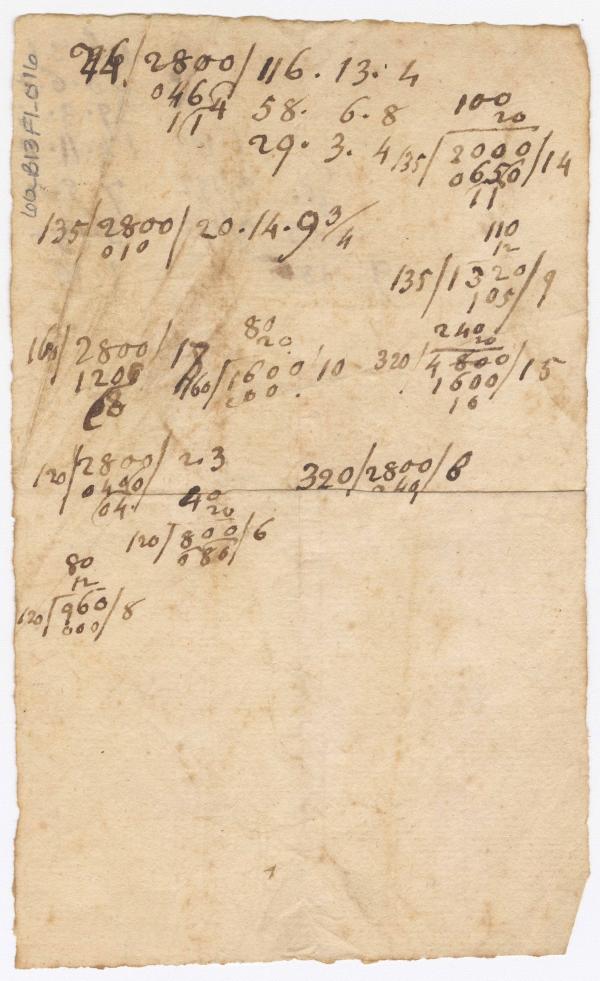 24/2800/116.13.4
0464
11
58. 6.8
29. 3. 4
100
20
135/2000/14
0650
11
135/2800/20.14.9 3/4
010
110
12
135/1320/9
105/
2800/17
1200
68
80
20
160/1600/10
000
240
20
320/4800/15
1600
10
120/2800/23
0400
04
320/2800/8
240
40
20
120/800/6
080
80
12
120/960/8
000